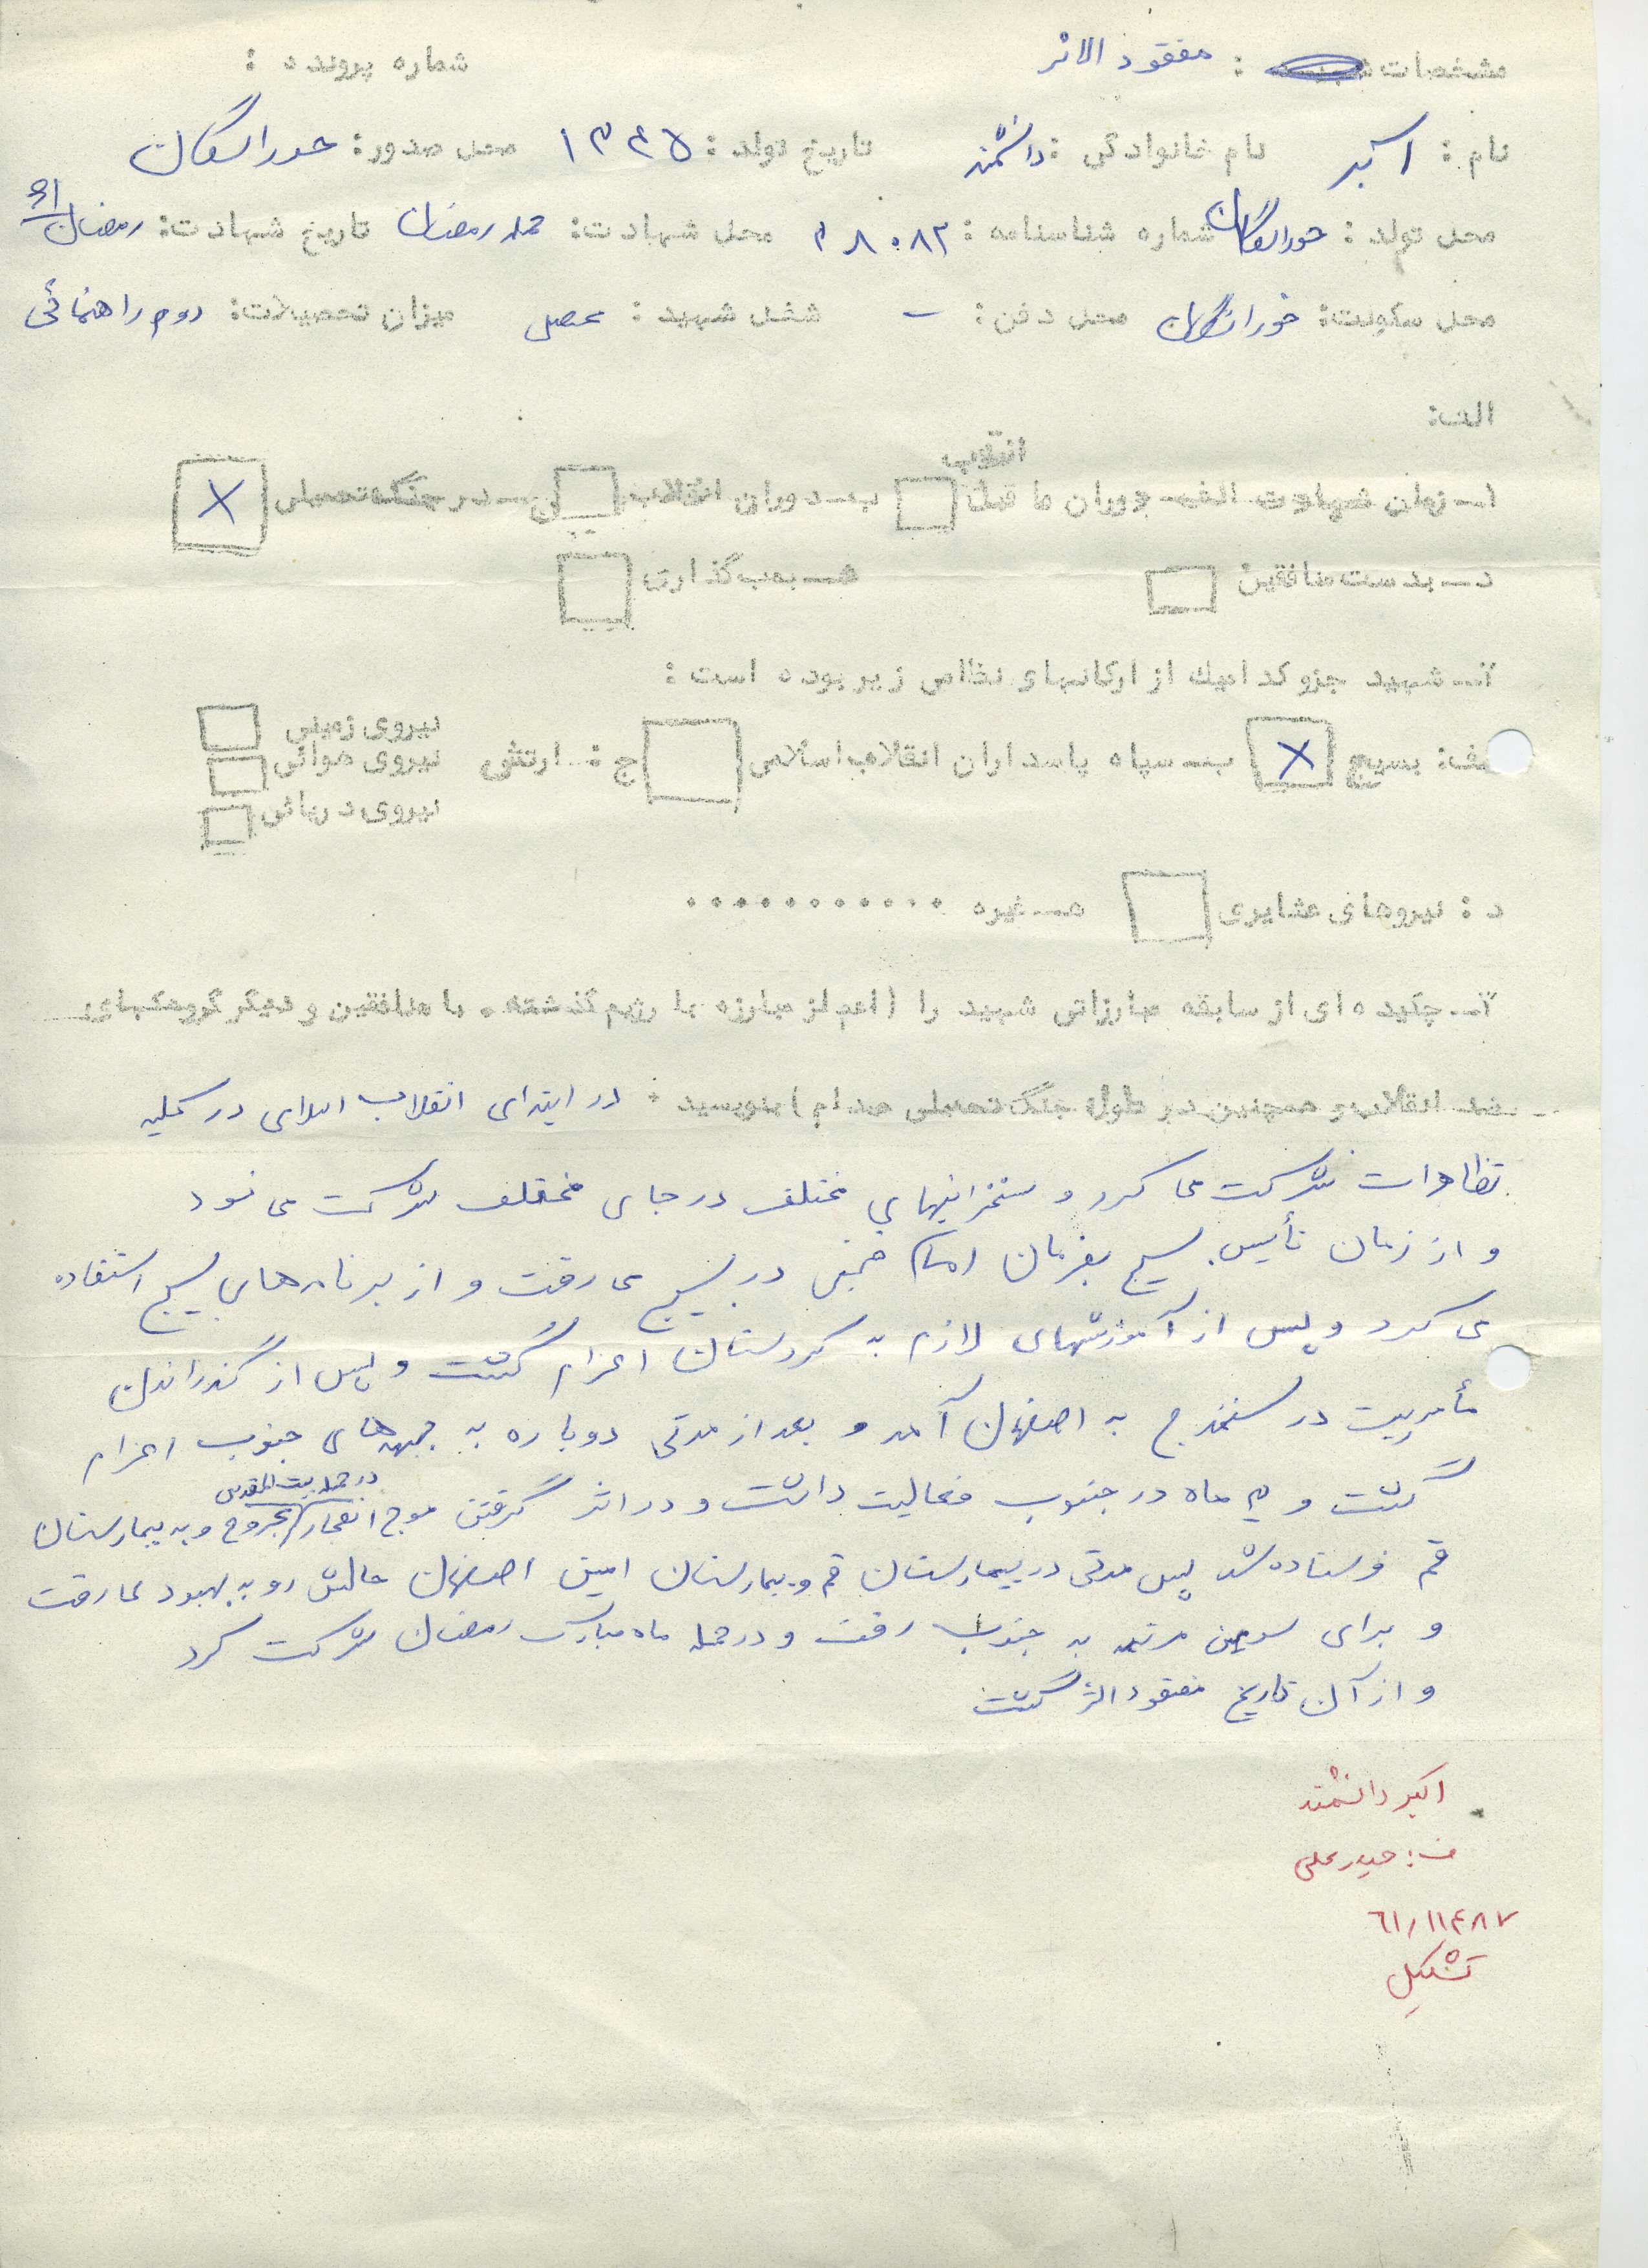 مشخصات : مفقود الاثر شماره پرونده :
نام : اکبر نام خانوادگی : دانشمند تاریخ تولد : ۱۳۴۵ محل صدور : خوراسگان
محل تولد : خوراسگان شماره شناسنامه : محل شهادت : حمله رمضان تاریخ شهادت : رمضان ۶۱
محل سکونت : خوراسگان محل دفن : - شغل شهید : محصل میزان تحصیلات : دوم راهنمائی
الف :
انقلاب
۱ــ زمان شهادت الف ــ دوران ما قبل ب ــ دوران انقلاب ــ در جنگ تحمیلی X
د ــ بدست منافقین هـ ــ بمب گذاری
۲ــ شهید جزو کدامیك از ارگانهای نظامی زیر بوده است :
الف : بسیج X ب ــ سپاه پاسداران انقلاب اسلامی ج : ارتش نیروی زمینی
نیروی هوائی
نیروی دریائی
د : نیروهای عشایری هـ ــ غیره ............
۳ــ چکیده ای از سابقه مبارزاتی شهید را (اعم از مبارزه با رژیم گذشته ، با منافقین و دیگر گروهکهای
ضد انقلاب و همچنین در طول جنگ تحمیلی صدام) بنویسید : در ابتدای انقلاب اسلامی در کلیه
تظاهرات شرکت می کرد و سخنرانیهای مختلف در جای مختلف شرکت می نمود
و از زمان تأسیس بسیج بفرمان امام خمینی در بسیج می رفت و از برنامه های بسیج استفاده
می کرد و پس از آموزشهای لازم به کردستان اعزام گشت و پس از گذراندن
مأموریت در سنندج به اصفهان آمد و بعد از مدتی دوباره به جبهه های جنوب اعزام
گشت و ۳ ماه در جنوب فعالیت داشت و در اثر گرفتن موج انفجار در حمله بیت المقدس مجروح و به بیمارستان
قم فرستاده شد پس مدتی در بیمارستان قم و بیمارستان امین اصفهان حالش رو به بهبود می رفت
و برای سومین مرتبه به جنوب رفت و در حمله ماه مبارک رمضان شرکت کرد
و از آن تاریخ مفقود الاثر گشت
اکبر دانشمند
ف : حیدرعلی
۶۱/۱۱۴۸۷
تشکیل